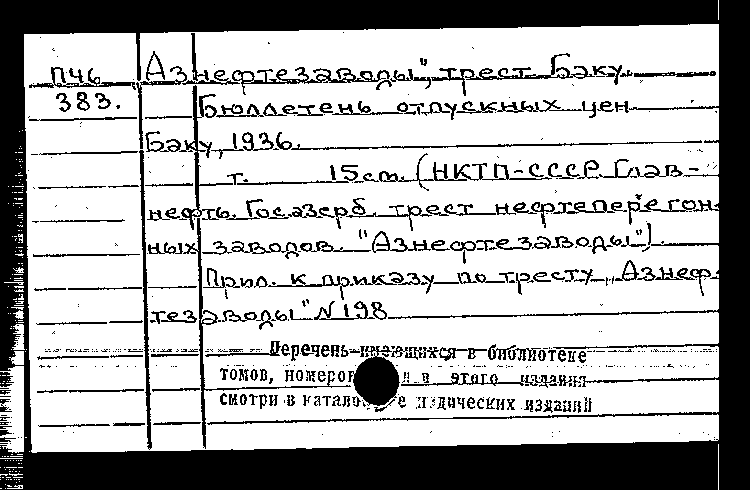 П46 Азнефтезаводы", трест. Баку.
383. Бюллетень отпускных цен
Баку, 1936.
т. 15 см. (НКТП-СССР. Глав-
нефть. Госазерб. трест нефтеперегон-
ных заводов. "Азнефтезаводы").
Прил. к приказу по тресту „Азнеф-
тезаводы" N 198
Перечень имеющихся в библиотеке
томов, номеров этого издания
смотри в каталоге изданий